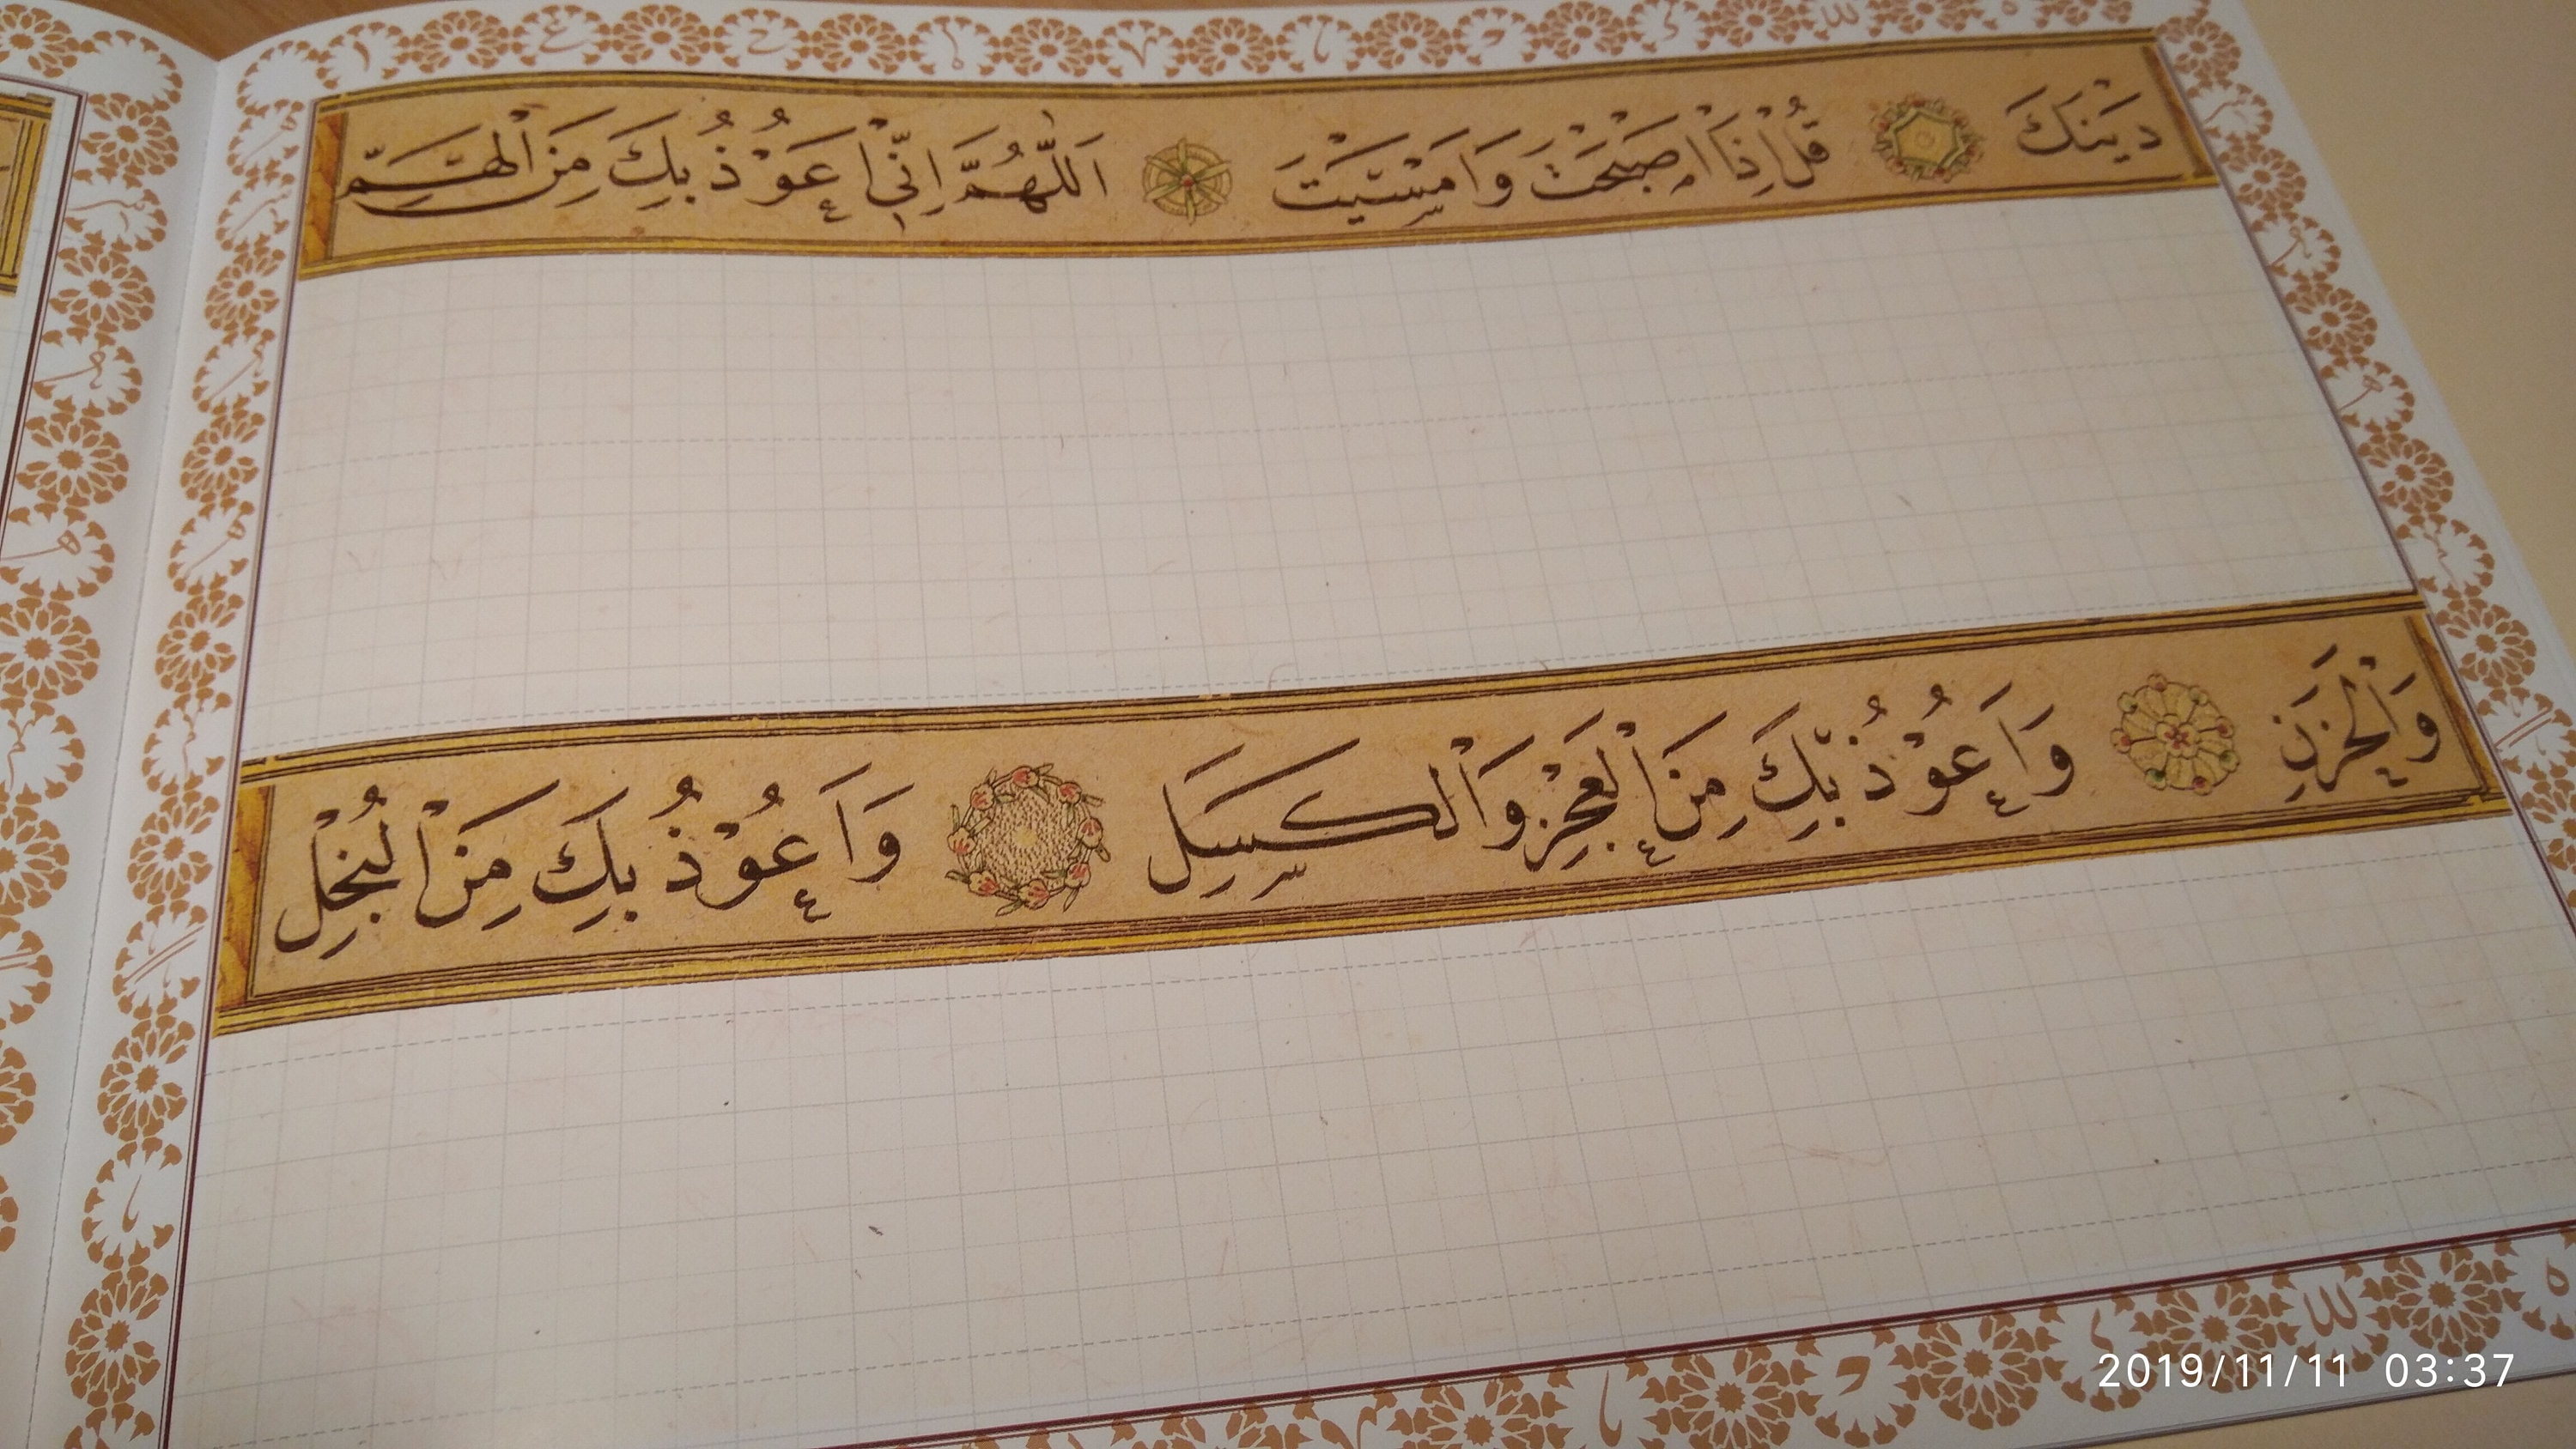 دَيْنَكَ قُلْ اِذَا اَصْبَحْتَ وَاَمْسَيْتَ اَللّٰهُمَّ اِنّٖى اَعُوْذُ بِكَ مِنَ الْهَمِّ
وَالْحَزَنِ وَاَعُوْذُ بِكَ مِنَ الْعَجْزِ وَالْكَسَلِ وَاَعُوْذُ بِكَ مِنَ الْبُخْلِ
2019/11/11 03:37